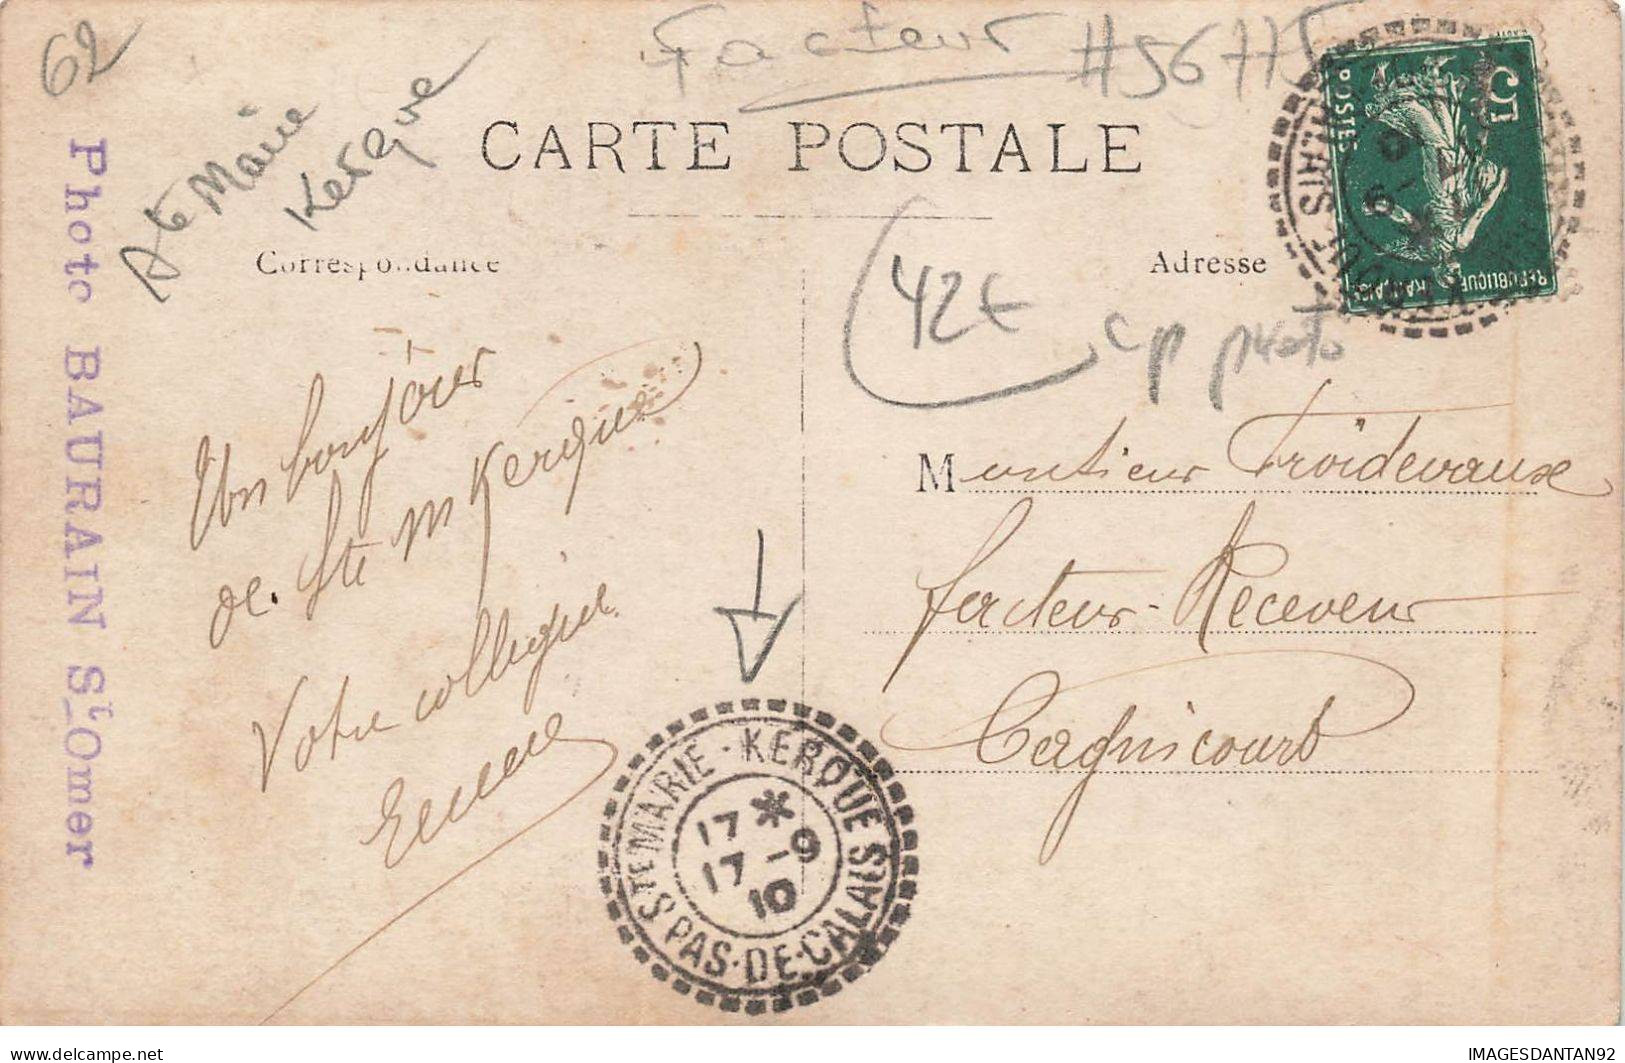 62
Facteur #56775
Ste Marie
Kerque
CARTE POSTALE
Correspondance
Adresse
42€
cp photo
5
POSTES
REPUBLIQUE FRANÇAISE
Photo BAURAIN St-Omer
Un bonjour
de Ste M Kerque
Votre collègue
Monsieur Froidevaux
facteur-Receveur
Cagnicourt
STE MARIE-KERQUE
17 * 9
17 - 9
10
PAS-DE-CALAIS
IMAGESDANTAN92
delcampe.net